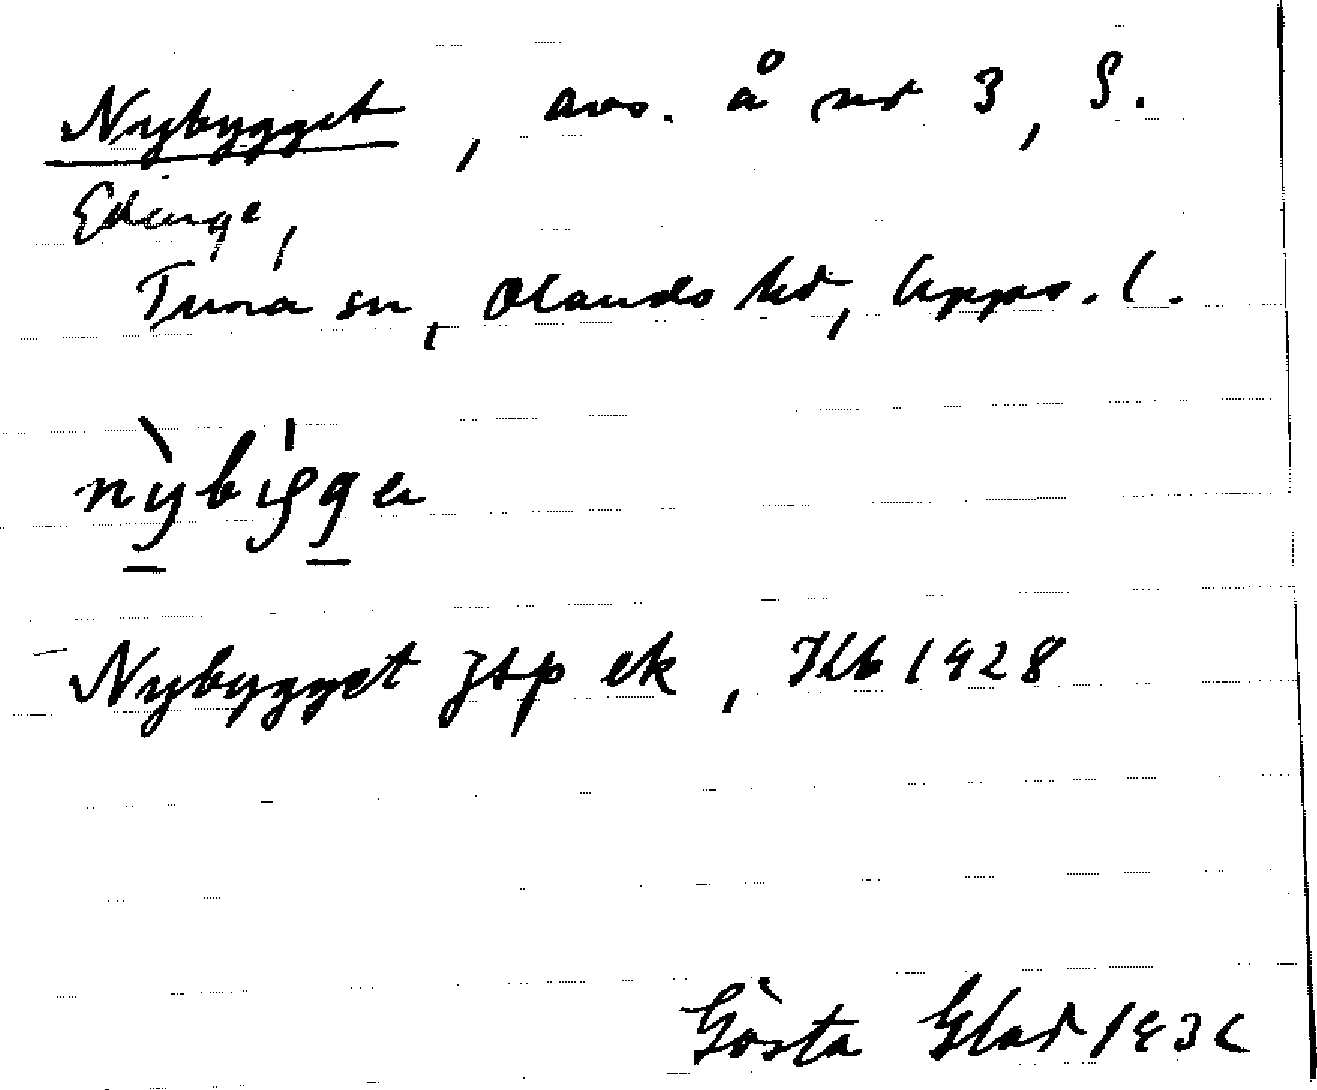 Nybygget, avs. å nr 3, S.
Edinge,
Tuna sn, Olands hd, Upps. l.
nybygge
Nybygget jtp ek, Kb 1928
Gösta Glad 193